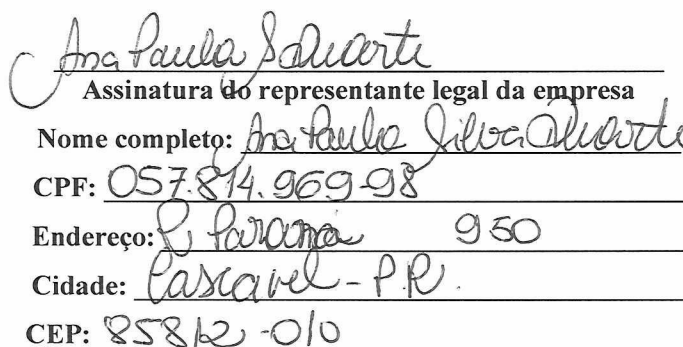 Ana Paula SDuarte
Assinatura do representante legal da empresa
Nome completo: Ana Paula Silva Duarte
CPF: 057.814.969-98
Endereço: R Paraná 950
Cidade: Cascavel - PR.
CEP: 85812-010